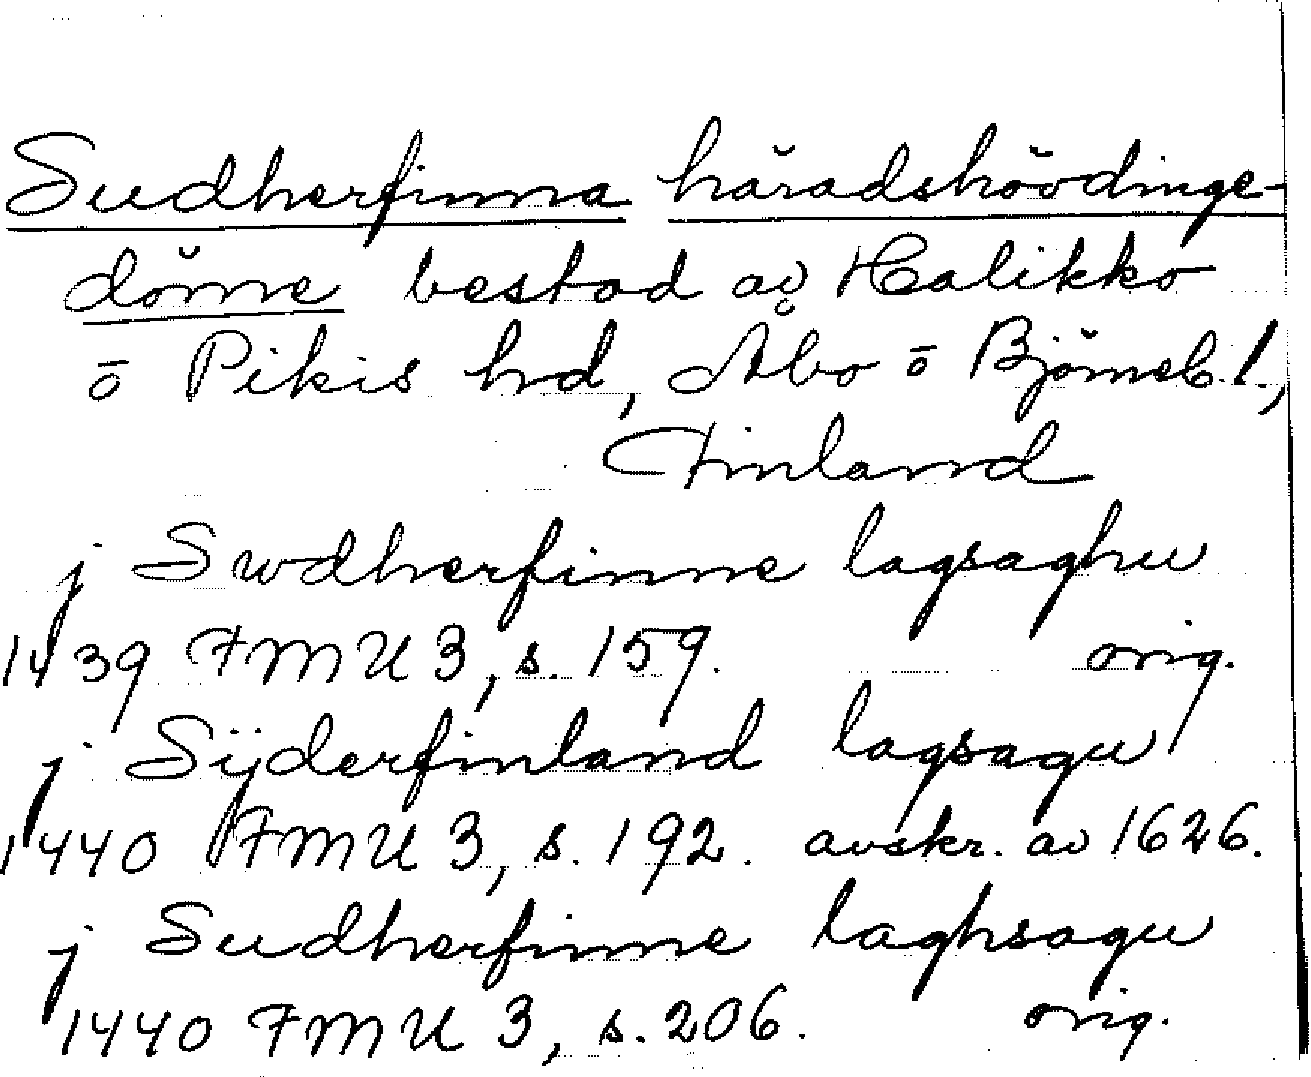 Sudherfinna häradshövdinge-
döme bestod av Halikko
o Pikis hd, Åbo o Björneb. l.,
Finland
j Swdherfinne lagsaghu
1439 FMU 3, s. 159. orig.
j Sÿderfinland lagsagu
1440 FMU 3, s. 192. avskr. av 1626.
j Sudherfinne laghsagu
1440 FMU 3, s. 206. orig.